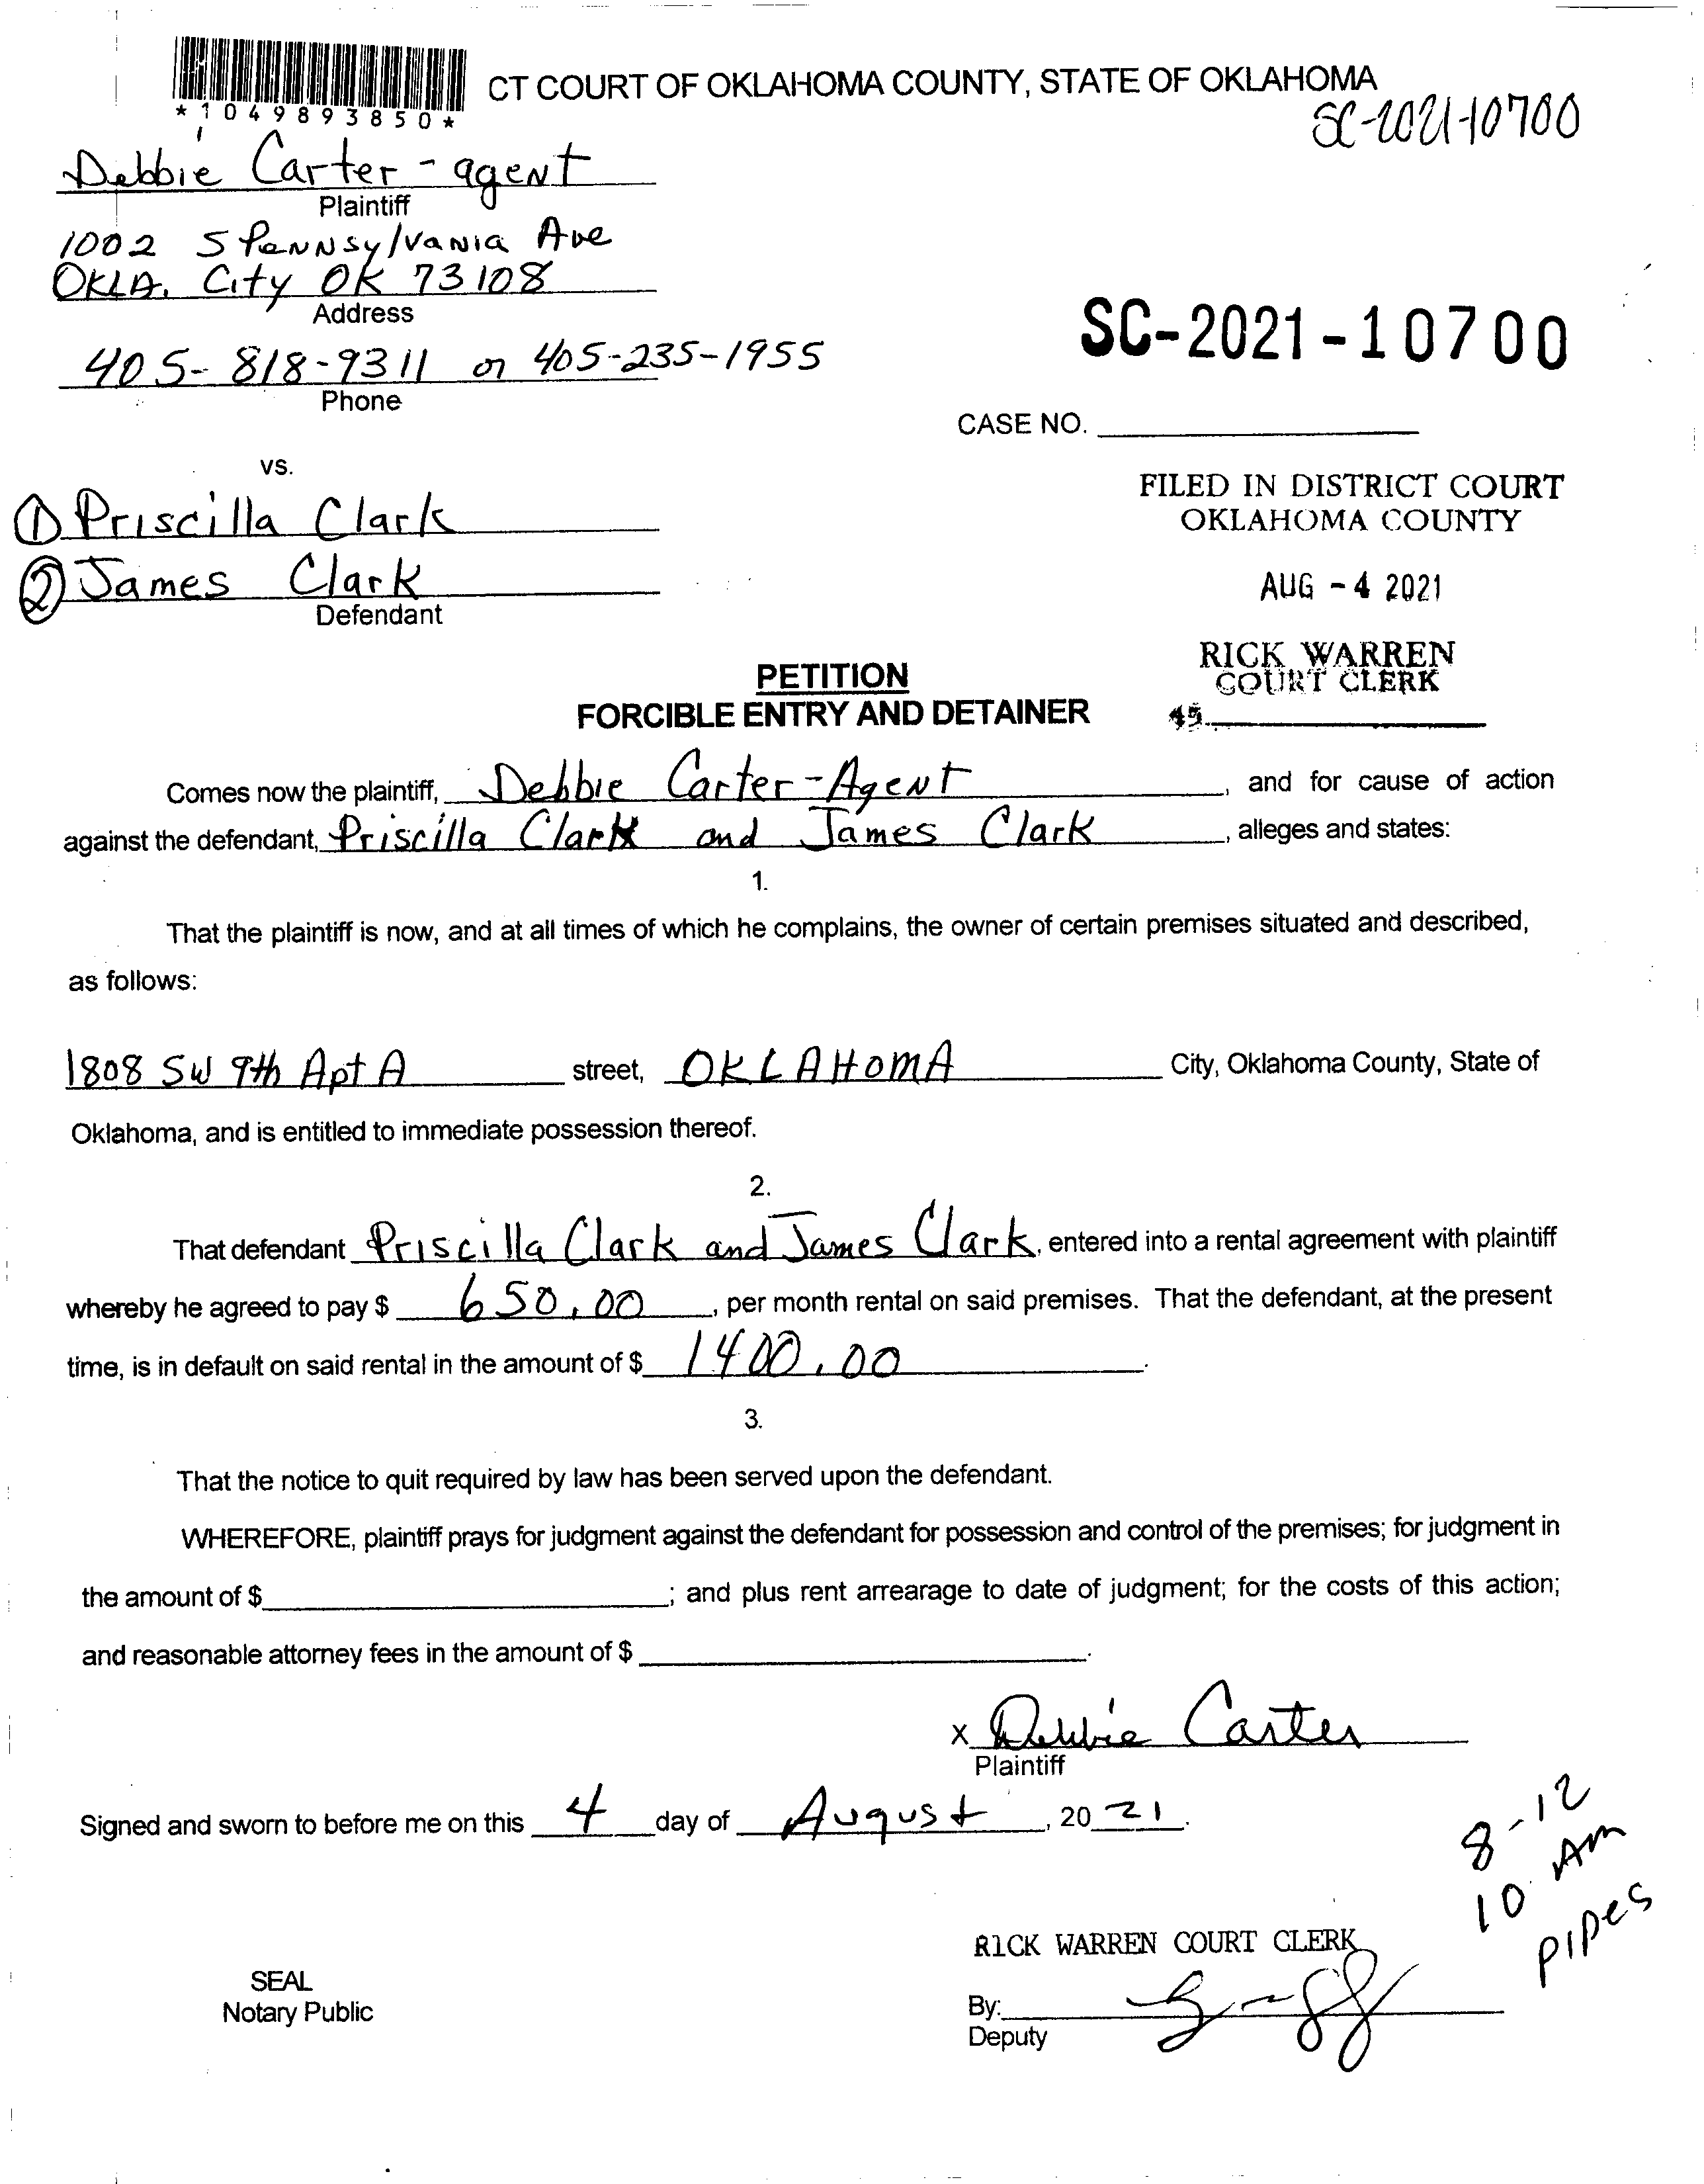 CT COURT OF OKLAHOMA COUNTY, STATE OF OKLAHOMA
*1049893850*
SC-2021-10700
Debbie Carter - agent
Plaintiff
1002 S Pennsylvania Ave
OKLA. City OK 73108
Address
SC-2021-10700
405-818-9311 or 405-235-1955
Phone
CASE NO.
vs.
FILED IN DISTRICT COURT
OKLAHOMA COUNTY
① Priscilla Clark
② James Clark
Defendant
AUG - 4 2021
RICK WARREN
COURT CLERK
45
PETITION
FORCIBLE ENTRY AND DETAINER
Comes now the plaintiff, Debbie Carter - Agent, and for cause of action
against the defendant, Priscilla Clark and James Clark, alleges and states:
1.
That the plaintiff is now, and at all times of which he complains, the owner of certain premises situated and described,
as follows:
1808 SW 9th Apt A street, OKLAHOMA City, Oklahoma County, State of
Oklahoma, and is entitled to immediate possession thereof.
2.
That defendant Priscilla Clark and James Clark, entered into a rental agreement with plaintiff
whereby he agreed to pay $ 650.00, per month rental on said premises. That the defendant, at the present
time, is in default on said rental in the amount of $ 1400.00.
3.
That the notice to quit required by law has been served upon the defendant.
WHEREFORE, plaintiff prays for judgment against the defendant for possession and control of the premises; for judgment in
the amount of $ ; and plus rent arrearage to date of judgment; for the costs of this action;
and reasonable attorney fees in the amount of $ .
x Debbie Carter
Plaintiff
Signed and sworn to before me on this 4 day of August, 20 21.
8-12
10 Am
Pipes
RICK WARREN COURT CLERK
SEAL
Notary Public
By:
Deputy